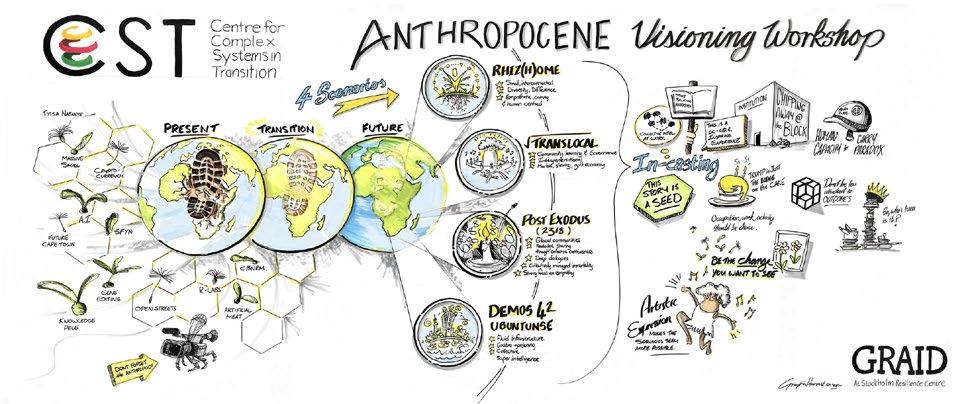 CST
Centre for
Complex
Systems in
Transition
ANTHROPOCENE Visioning Workshop
4 Scenarios
PRESENT
TRANSITION
FUTURE
MASSIVE
SMALL
CRYPTO-
CURRENCY
A.I
SFYN
FUTURE
CAPE TOWN
GENE
EDITING
KNOWLEDGE
OPEN STREETS
R-LABS
ARTIFICIAL
MEAT
DON'T FORGET
the ANTHROPOCENE!
RHIZ(H)OME
Small, interconnected
Diversity, Difference
Empathetic, caring
Human centred
TRANSLOCAL
Community, learning & Governance
Market, sharing, gift economy
POST EXODUS
(2318)
Global communities
Radical sharing
Deep dialogues
Collectively managed immortality
Strong focus on empathy
DEMOS 42
UBUNTUNSE
Fluid Infrastructure
Collective
Super Intelligence
In-casting
THIS
STORY IS
A SEED
INSTITUTION
CHIPPING
AWAY @
the
BLOCK
HUMAN
CAPACITY &
CARRY
PARADOX
TRUMP is JUST
THE ICING
on the CAKE
Don't be too
attached to
OUTCOMES
So, who's turn
is it?
Occupation, work, activity
should be choice.
BE THE change
YOU WANT TO SEE
Artistic
Expression
MAKES THE
SCENARIOS SEEM
MORE POSSIBLE.
GRAID
At Stockholm Resilience Centre